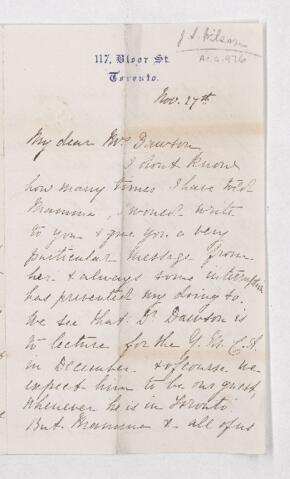 J. S. Wilson
117, Bloor St.
Toronto.
Nov. 27th
My dear Mrs Dawson,
I dont know
how many times I have told
Mamma, I would write
to you & give you a very
particular message from
her & always some interruption
has prevented my doing so.
We see that Dr Dawson is
to lecture for the Y. M. C. A.
in December & of course we
expect him to be our guest,
whenever he is in Toronto.
But Mamma & all of us